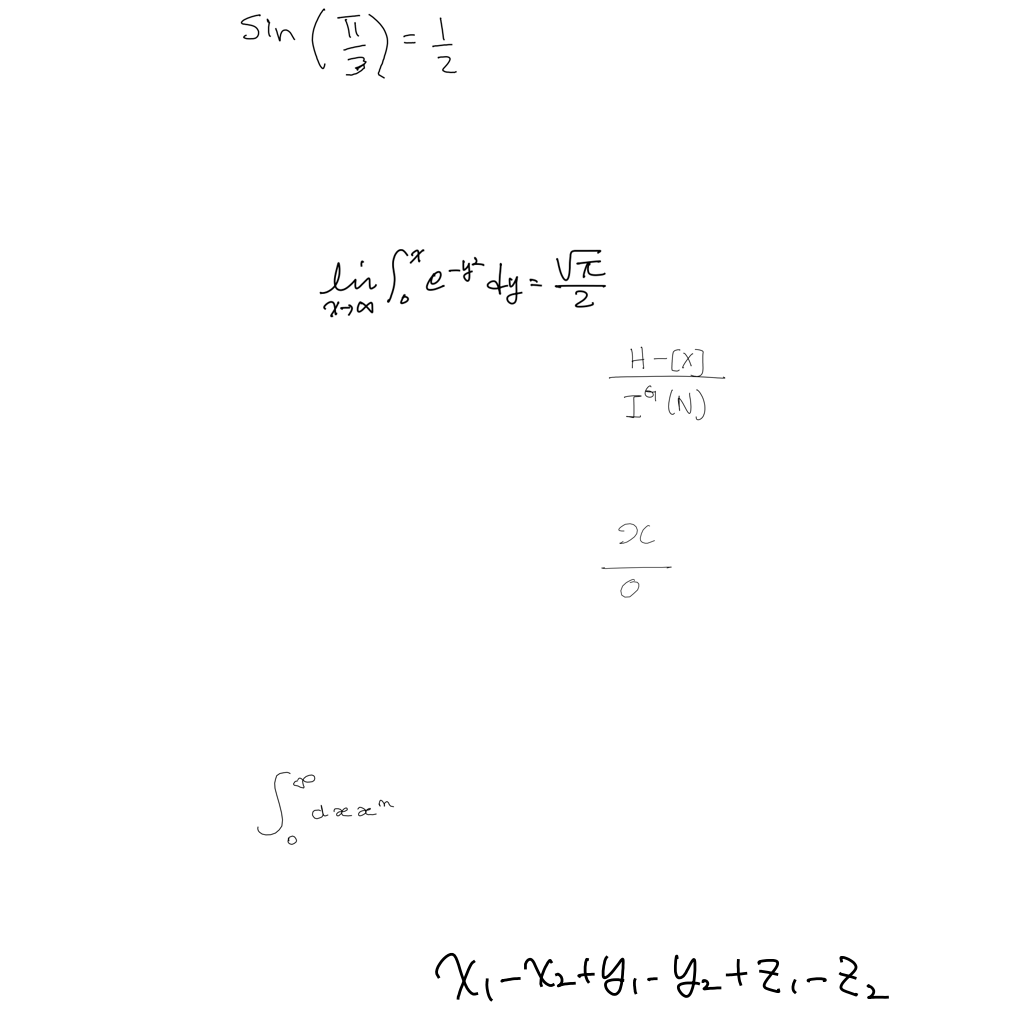 sin(π/3) = 1/2
lim_{x→∞} ∫_0^x e^{-y^2} dy = √π/2
(H-[X])/(I^G(N))
x/0
∫_0^∞ dx x^n
x_1-x_2+y_1-y_2+z_1-z_2